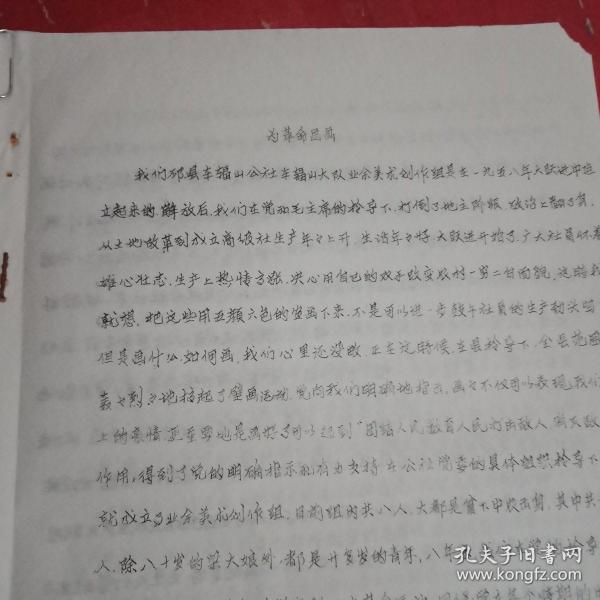 为革命思画
我们邳县车辐山公社车辐山大队业余美术创作组是在一九五八年大跃进中建
立起来的.解放后,我们在党和毛主席的领导下,打倒了地主阶级,政治上翻了身,
从土地改革到成立高级社生产年々上升,生活年々好,大跃进开始了,广大社员怀着
雄心壮志,生产上热情高涨,决心用自己的双手改变农村一穷二白面貌,这时我
就想,把这些用五颜六色的笔画下来,不是可以进一步鼓午社员的生产劲头吗
但是画什么,如何画,我们心里还没数,正在这时候,在县领导下,全县范围
轰々烈々地搞起了壁画运动,党向我们明确地指出,画々不仅可以表现我们
上的豪情,更重要地是画好了可以起到"团结人民教育人民打击敌人,消灭敌
作用,得到了党的明确指示和有力支持,在公社党委的具体组织领导下
就成立了业余美术创作组,目前组内共八人,大都是贫下中农出身,其中共
人,除八十岁的梁大娘外,都是廿多岁的青年,八年来
孔夫子旧书网
www.kongfz.com